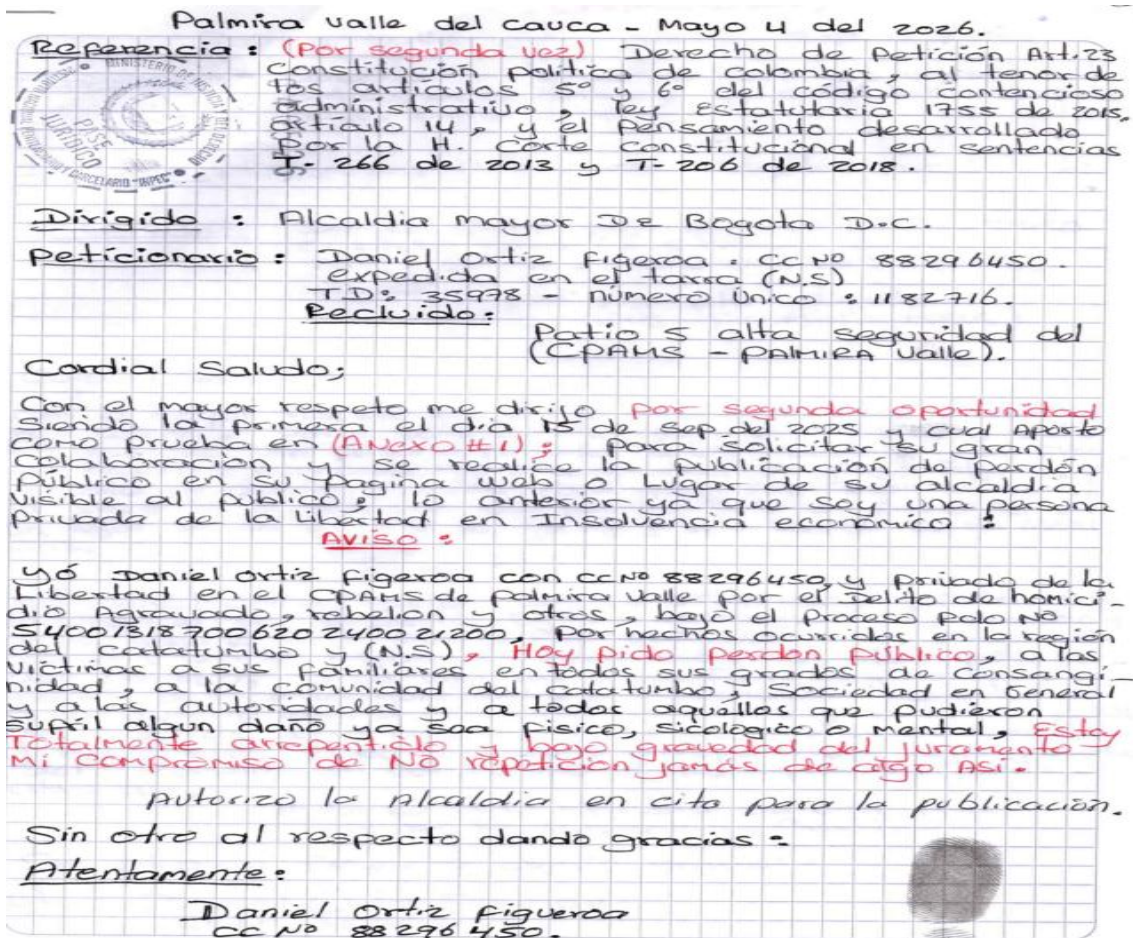 Palmira valle del cauca - Mayo 4 del 2026.
Referencia: (Por segunda vez) Derecho de Petición Art.23
Constitución política de colombia, al tenor de
los artículos 5º y 6º del código contencioso
administrativo, ley estatutaria 1755 de 2015,
artículo 14, y el pensamiento desarrollado
Por la H. Corte constitucional en sentencias
T-266 de 2013 y T-206 de 2018.
MINISTERIO DE JUSTICIA
PASE
JURÍDICO
Y CARCELARIO "INPEC"
Dirigido: Alcaldia mayor De Bogota D.C.
Peticionario: Daniel Ortiz Figeroa. CC Nº 88296450.
expedida en el tarra (N.S)
T.D: 35978 - número único: 1182716.
Recluido:
Patio 5 alta seguridad del
(CPAMS - PALMIRA Valle).
Cordial Saludo;
Con el mayor respeto me dirijo por segunda oportunidad
Siendo la primera el dia 15 de Sep del 2025 y cual Aporto
como prueba en (ANexo #1); para solicitar su gran
Colaboración y se realice la publicación de perdón
Público en su pagina web o Lugar de su alcaldía
visible al público; lo anterior ya que soy una persona
privada de la Libertad en Insolvencia económica:
AVISO:
yó Daniel ortiz Figeroa con CC Nº 88296450, y privado de la
Libertad en el CPAMS de palmira Valle por el Delito de homici-
dio Agravado, rebelion y otros, bajo el Proceso Palo Nº
54001318700620240021200, por hechos ocurridos en la región
del catatumbo y (N.S), Hoy pido perdon público, a las
victimas a sus familiares en todos sus grados de consangi-
nidad, a la comunidad del catatumbo, Sociedad en General
y a las autoridades y a todos aquéllos que pudieron
Supril algun daño ya sea fisico, sicologico o mental, Estoy
Totalmente arrepentido y bajo gravedad del juramento
Mi compromiso de NO repetición jamás de algo Así.
Autorizo la Alcaldia en cita para la publicación.
Sin otro al respecto dando gracias:
Atentamente:
Daniel Ortiz Figueroa
CC Nº 88296450.